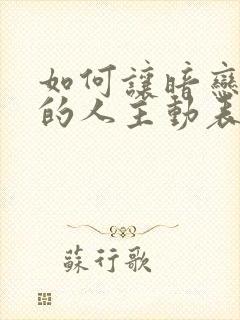 如何讓暗戀
的人主動表
蘇行歌